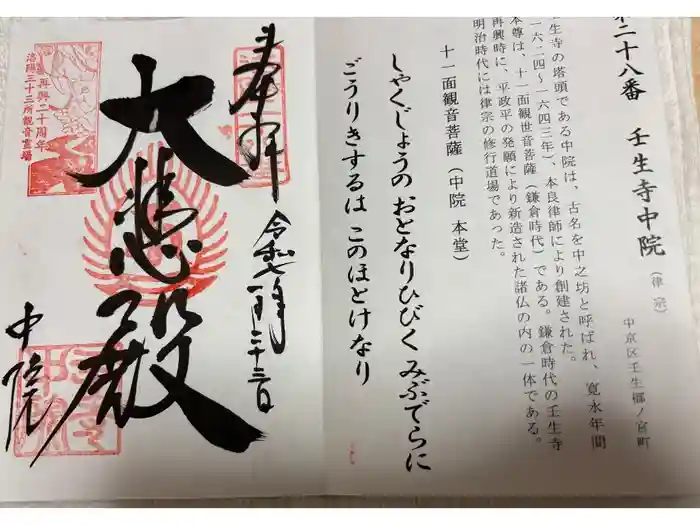 第二十八番 壬生寺中院(律宗)
中京区壬生梛ノ宮町
壬生寺の塔頭である中院は、古名を中之坊と呼ばれ、寛永年間
(一六二四~一六四三年)、本良律師により創建された。
本尊は、十一面観世音菩薩(鎌倉時代)である。鎌倉時代の壬生寺
再興時に、平政平の発願により新造された諸仏の内の一体である。
明治時代には律宗の修行道場であった。
十一面観音菩薩(中院 本堂)
しゃくじょうの おとなりひびく みぶでらに
ごうりきするは このほとけなり
奉拝
令和七年
二十三日
大悲殿
中院
再興二十周年
洛陽三十三所観音霊場